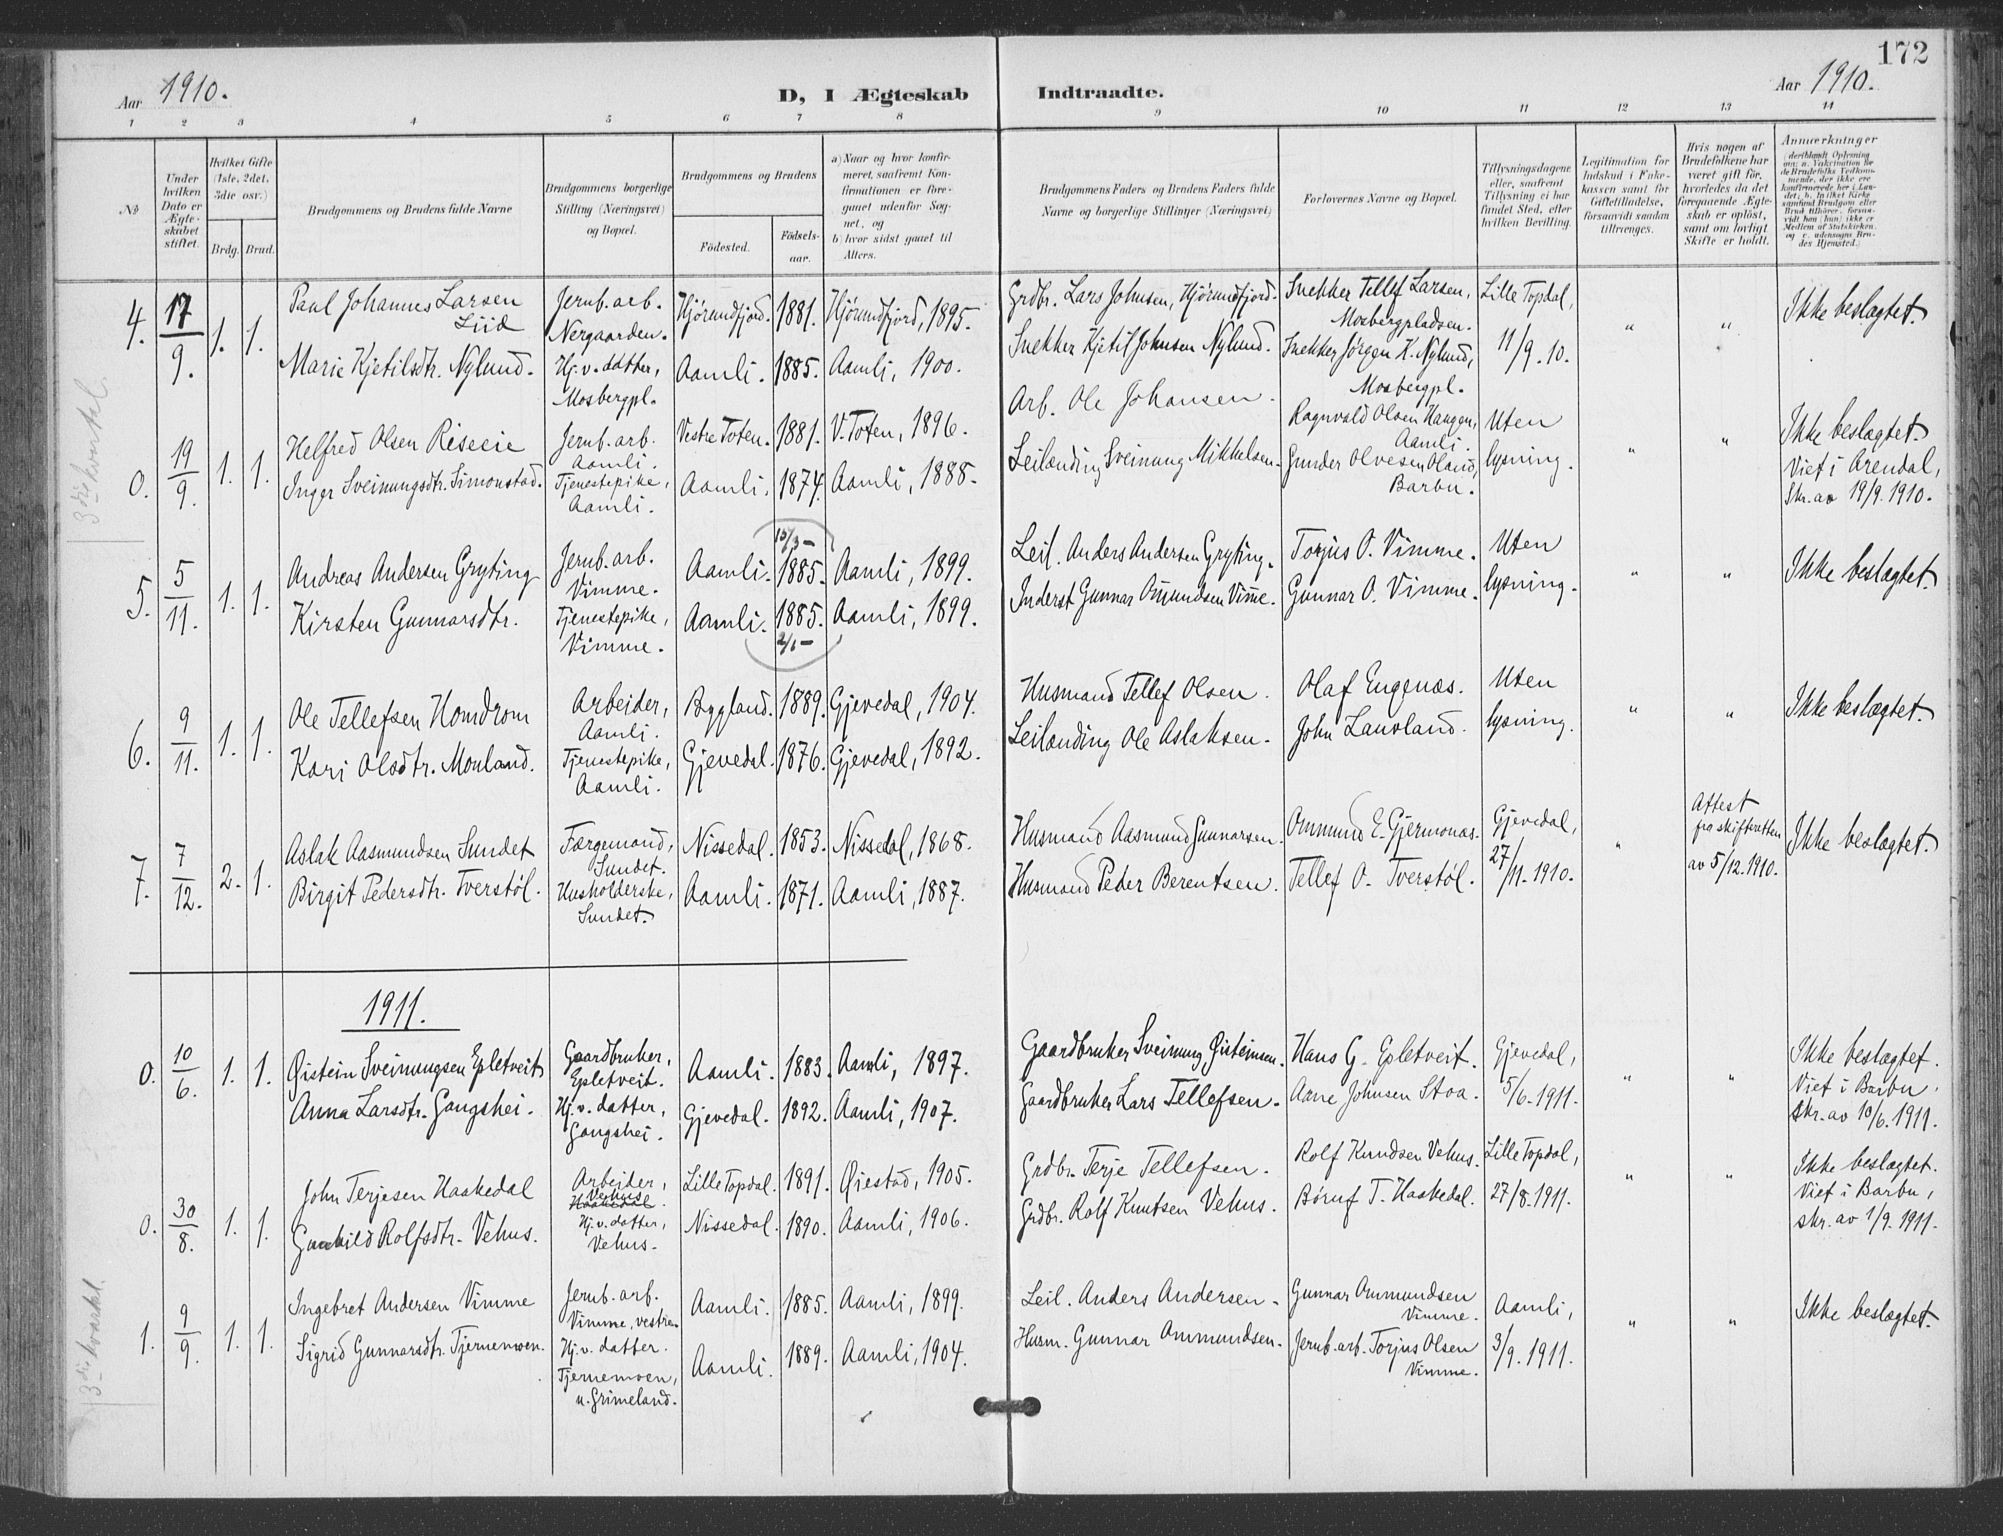 172
Aar 1910.
D, I Ægteskab Indtraadte.
Aar 1910.
1 2 3 4 5 6 7 8 9 10 11 12 13 14
No
Under hvilken Dato er Ægteskabet stiftet.
Hvilket Gifte (1ste, 2det, 3die osv.)
Brdg. Brud.
Brudgommens og Brudens fulde Navne
Brudgommens borgerlige Stilling (Næringsvei) og Bopæl.
Brudgommens og Brudens
Födested. Födsels-aar.
a) Naar og hvor konfirmeret, saafremt Konfirmationen er foregaaet udenfor Sognet, og
b) hvor sidst gaaet til Alters.
Brudgommens Faders og Brudens Faders fulde Navne og borgerlige Stillinger (Næringsvei)
Forlovernes Navne og Bopæl.
Tillysningsdagene eller, saafremt Tillysning ei har fundet Sted, efter hvilken Bevilling.
Legitimation for Indskud i Enkekassen samt for Giftetilladelse, forsaavidt saadan tiltrænges.
Hvis nogen af Brudefolkene har været gift før, hvorledes da det foregaaende Ægteskab er opløst, samt om lovligt Skifte er holdt.
Anmærkninger
3die kvartal.
4. 17/9. 1. 1. Paul Johannes Larsen Liid Jernb. arb. Nergaarden. Hjørundfjord. 1881. Hjørundfjord, 1895. Grdbr. Lars Johnsen, Hjørundfjord. Snekker Tellef Larsen, Mosbergpladsen. Lille Topdal, 11/9. 10. " " Ikke beslægtet.
Marie Kjetilsdtr. Nylund. Hj. v. datter, Mosbergpl. Aamli. 1885. Aamli, 1900. Snekker Kjetil Johnsen Nylund. Snekker Jørgen K. Nylund, Mosbergpl.
0. 19/9. 1. 1. Helfred Olsen Jernb. arb. Aamli. Vestre Toten. 1881. V. Toten, 1896. Arb. Ole Johansen. Ragnvald Olsen Haugen, Aamli. Uten lysning. " " Ikke beslægtet.
Inger Sveinungsdtr. Simonstad. Tjenestepike, Aamli. Aamli, 1874. Aamli, 1888. Leilænding Sveinung Mikkelsen. Gunder Olvesen Øland, Barbu. Viet i Arendal, Skr. av 19/9. 1910.
5. 5/11. 1. 1. Andreas Andersen Gryting Jernb. arb. Vimme. Aamli. 15/3 – 1885. Aamli, 1899. Leil. Anders Andersen Gryting. Torjus O. Vimme. Uten lysning. " " Ikke beslægtet.
Kirsten Gunnarsdtr. Tjenestepike, Vimme. Aamli. 1885. 2/1 – Aamli, 1899. Inderst Gunnar Omundsen Vimme. Gunnar O. Vimme.
6. 9/11. 1. 1. Ole Tellefsen Homdrom Arbeider, Aamli. Bygland. 1889. Gjevedal, 1904. Husmand Tellef Olsen. Olaf Engenæs. Uten lysning. " " Ikke beslægtet.
Kari Olsdtr. Mouland. Tjenestepike, Aamli. Gjevedal. 1876. Gjevedal, 1892. Leilænding Ole Aslaksen. John Lauvland.
7. 7/12. 2. 1. Aslak Aasmundsen Sundet Færgemand, Sundet. Nissedal. 1853. Nissedal, 1868. Husmand Aasmund Gunnarsen. Ommund E. Gjermonæs. Gjevedal, 27/11. 1910. " Attest fra skifteretten av 5/12. 1910. Ikke beslægtet.
Birgit Pedersdtr. Tverstøl. Husholderske, Sundet. Aamli. 1871. Aamli, 1887. Husmand Peder Berentsen. Tellef O. Tverstøl.
1911.
0. 10/6. 1. 1. Øistein Sveinungsen Epletveit Gaardbruker, Epletveit. Aamli. 1883. Aamli, 1897. Gaardbruker Sveinung Øisteinsen. Hans G. Epletveit. Gjevedal, 5/6. 1911. " " Ikke beslægtet.
Anna Larsdtr. Gangshei. Hj. v. datter, Gangshei. Gjevedal. 1892. Aamli, 1907. Gaardbruker Lars Tellefsen. Aane Johnsen Stoa. Viet i Barbu, skr. av 10/6. 1911.
0. 30/8. 1. 1. John Terjesen Haakedal Arbeider, Vehus Haakedal. Lille Topdal. 1891. Øiestad, 1905. Grdbr. Terje Tellefsen. Rolf Knudsen Vehus. Lille Topdal, 27/8. 1911. " " Ikke beslægtet.
Gunhild Rolfsdtr. Vehus. Hj. v. datter, Vehus. Nissedal. 1890. Aamli, 1906. Grdbr. Rolf Knutsen Vehus. Børuf T. Haakedal. Viet i Barbu, skr. av 1/9. 1911.
3die kvartal.
1. 9/9. 1. 1. Ingebret Andersen Vimme Jernb. arb. Vimme, vestre. Aamli. 1885. Aamli, 1899. Leil. Anders Andersen. Gunnar Ommundsen Vimme. Aamli, 3/9. 1911. " " Ikke beslægtet.
Sigrid Gunnarsdtr. Tjernemoen. Hj. v. datter. Tjernemoen, u. Grimeland. Aamli. 1889. Aamli, 1904. Husm. Gunnar Ommundsen. Jernb. arb. Torjus Olsen Vimme.